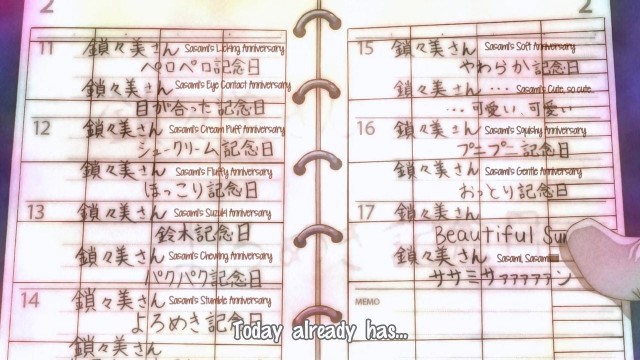 2
11 鎖々美さん Sasami's Licking Anniversary
ペロペロ記念日
鎖々美さん Sasami's Eye Contact Anniversary
目が合った記念日
12 鎖々美さん Sasami's Cream Puff Anniversary
シュークリーム記念日
鎖々美さん Sasami's Fluffy Anniversary
ほっこり記念日
13 鎖々美さん Sasami's Suzuki Anniversary
鈴木記念日
鎖々美さん Sasami's Chewing Anniversary
パクパク記念日
14 鎖々美さん Sasami's Stumble Anniversary
よろめき記念日
鎖々美さん
2
15 鎖々美さん Sasami's Soft Anniversary
やわらか記念日
鎖々美さん・・・ Sasami's Cute, so cute...
・・・可愛い、可愛い
16 鎖々美さん Sasami's Squishy Anniversary
プニプニ記念日
鎖々美さん Sasami's Gentle Anniversary
おっとり記念日
17 鎖々美さん
Beautiful
鎖々美さん Sasami, Sasami
ササミサァァァァァン
MEMO
Today already has...